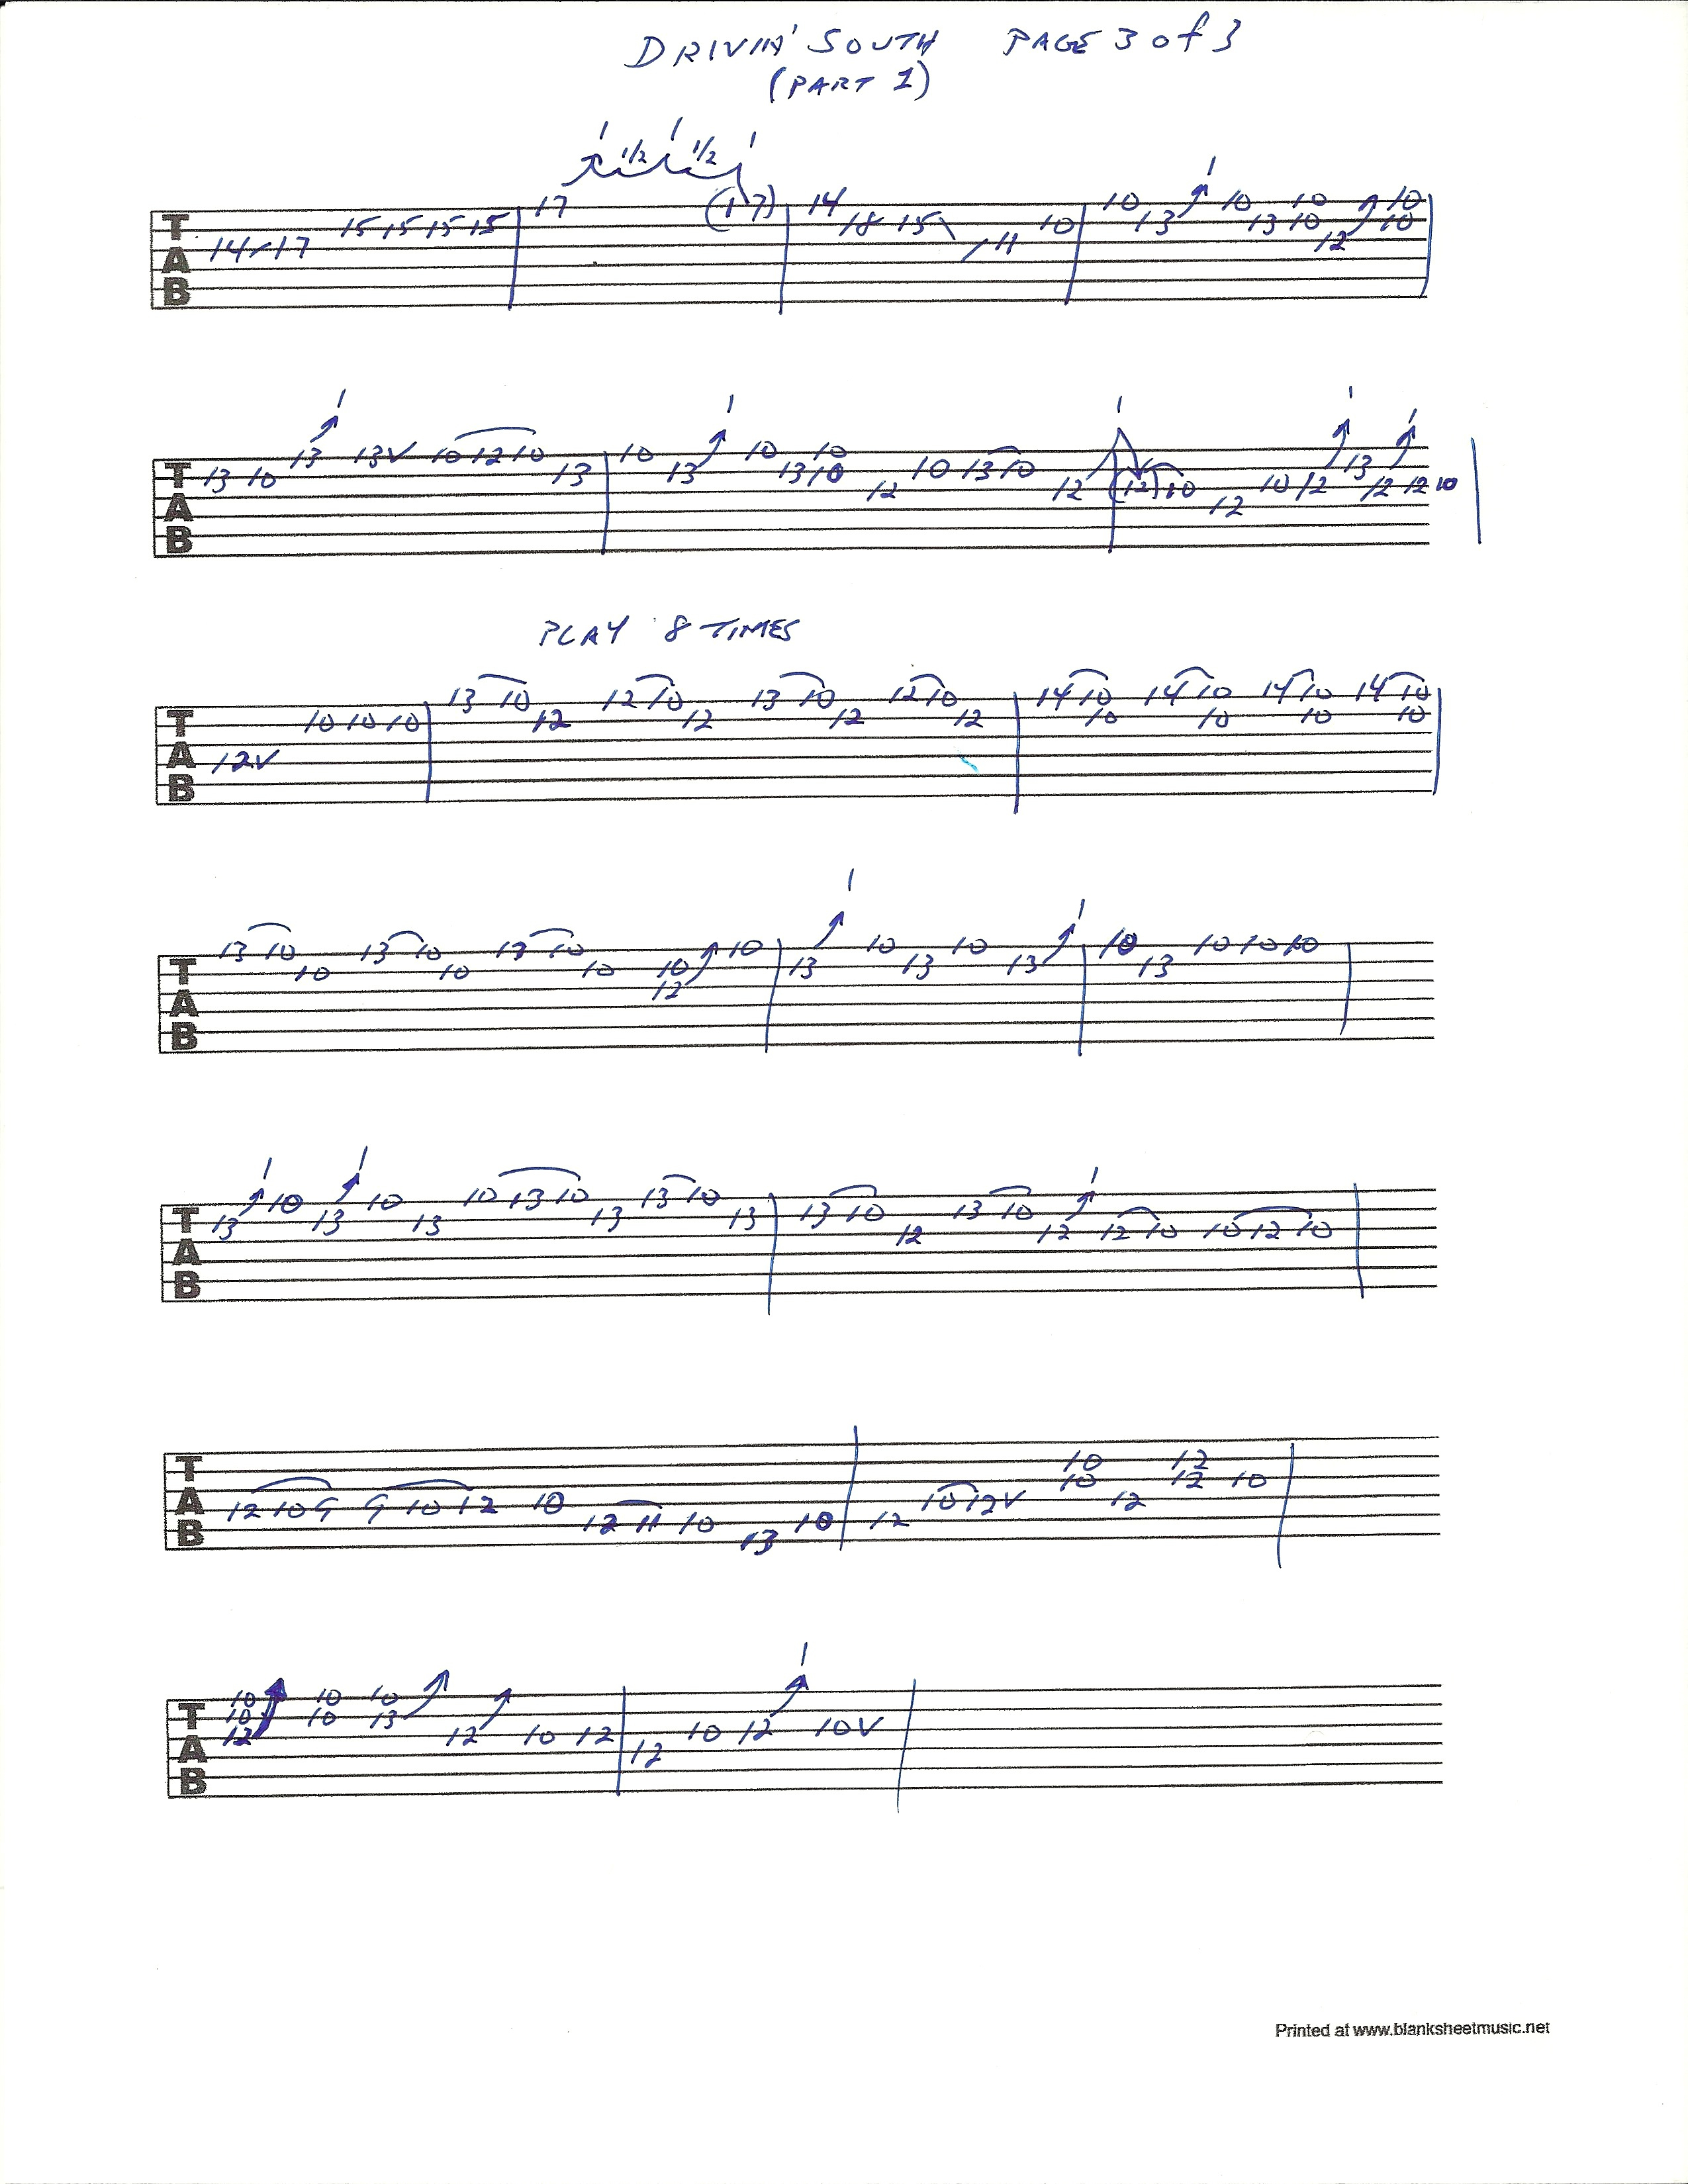 DRIVIN' SOUTH PAGE 3 of 3
(PART 1)
1 1/2 1 1/2 1
17 (17) 14 10 1 10 10 10
T 15 15 15 15 18 15 10 13 13 10 10
14 17 11 12
A
B
1 1 1 1 1
13 13V 10 12 10 10 10 10
T 13 10 13 13 13 10 10 13 10 13
12 12 (12) 10 10 12 12 12 10
A 12
B
PLAY 8 TIMES
13 10 12 10 13 10 12 10 14 10 14 10 14 10 14 10
T 10 10 10 12 12 12 12 10 10 10 10
A 12V
B
1 1
13 10 13 10 13 10 10 10 10 10 10 10 10
T 10 10 10 10 13 13 13 13
12
A
B
1 1 1
10 10 10 13 10 13 10
T 13 13 13 13 13 13 10 13 10
12 12 12 10 10 12 10
A
B
T 10 12
10 12 10
A 12 10 9 9 10 12 10 10 12V 12
B 12 11 10 10 12
13
1
10 10 10
T 10 10 13
12 12 10 12 10 12 10V
A 12
B
Printed at www.blanksheetmusic.net